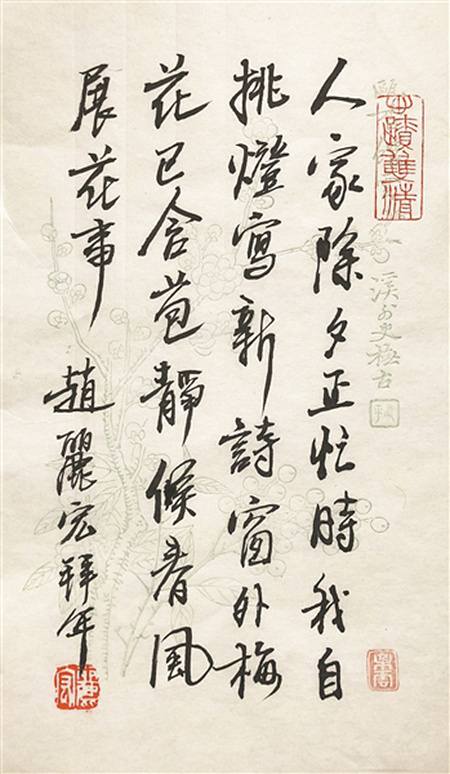 心蹟雙清
人家除夕正忙時我自
挑燈寫新詩窗外梅
花已含苞靜候春風
展花事 趙麗宏拜年